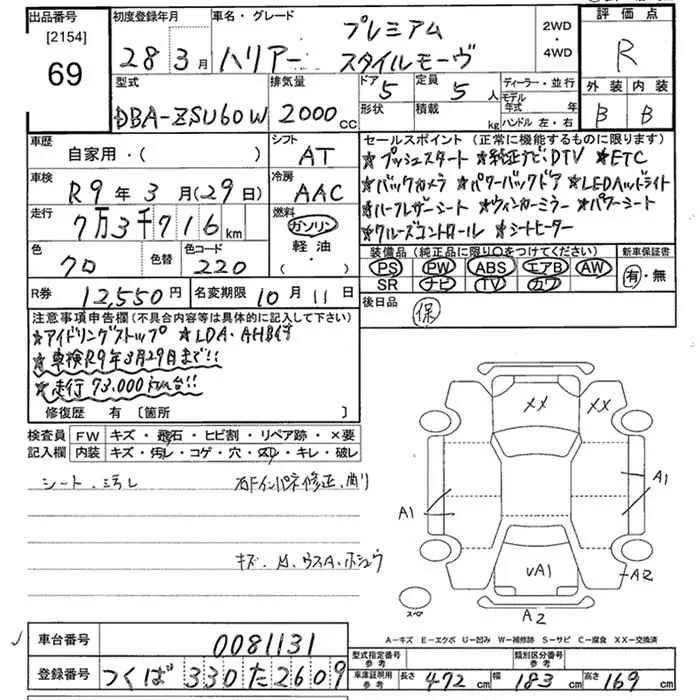 出品番号
[2154]
69
初度登録年月
28 3月
車名・グレード
ハリアー プレミアム
スタイルモーヴ
2WD
・
4WD
評価点
R
外装 内装
B B
型式
DBA-ZSU60W
排気量
2000cc
ドア 5
形状
定員 5人
積載 kg
ディーラー・並行
モデル年式 年
ハンドル 左・右
車歴
自家用・( )
シフト
AT
車検
R9年3月(29日)
冷房
AAC
走行
7万3千716km
燃料
ガソリン
軽油
・( )
色
クロ
色替
色コード
220
セールスポイント(正常に機能するものに限ります)
★プッシュスタート ★純正ナビ、DTV ★ETC
★バックカメラ ★パワーバックドア ★LEDヘッドライト
★ハーフレザーシート ★ウィンカーミラー ★パワーシート
★クルーズコントロール ★シートヒーター
装備品(純正品に限り○をつけてください)
PS PW ABS エアB AW
SR ナビ TV カワ
新車保証書
有・無
R券
12,550円
名変期限
10月11日
後日品
保
注意事項申告欄(不具合内容等は具体的に記入して下さい)
★アイドリングストップ ★LDA・AHB付
★車検R9年3月29日まで!!
★走行73.000km台!!
修復歴 有 〔箇所 〕
検査員記入欄
FW キズ・飛石・ヒビ割・リペア跡・×要
内装 キズ・汚レ・コゲ・穴・スレ・キレ・破レ
シート、汚レ
右ドインパネ修正、削り
キズ、U、ウスA、ホシュウ
XX
XX
A1
A1
VA1
A2
A2
スペア
A-キズ E-エクボ U-凹み W-補修跡 S-サビ C-腐食 XX-交換済
車台番号
0081131
登録番号
つくば 330 た 2609
型式指定番号 参考
類別区分番号 参考
車庫証明用 参考
長さ 472cm
幅 183cm
高さ 169cm